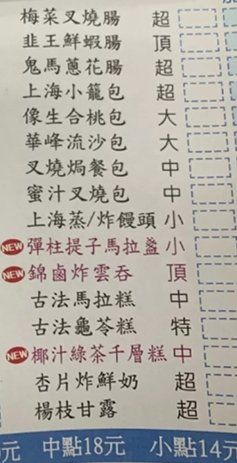 梅菜叉燒腸 超
韭王鮮蝦腸 頂
鬼馬蔥花腸 超
上海小籠包 超
像生合桃包 大
華峰流沙包 大
叉燒焗餐包 中
蜜汁叉燒包 中
上海蒸/炸饅頭 小
NEW 彈柱提子馬拉盞 小
NEW 錦鹵炸雲吞 頂
古法馬拉糕 中
古法龜苓糕 特
NEW 椰汁綠茶千層糕 中
杏片炸鮮奶 超
楊枝甘露 超
元 中點18元 小點14元